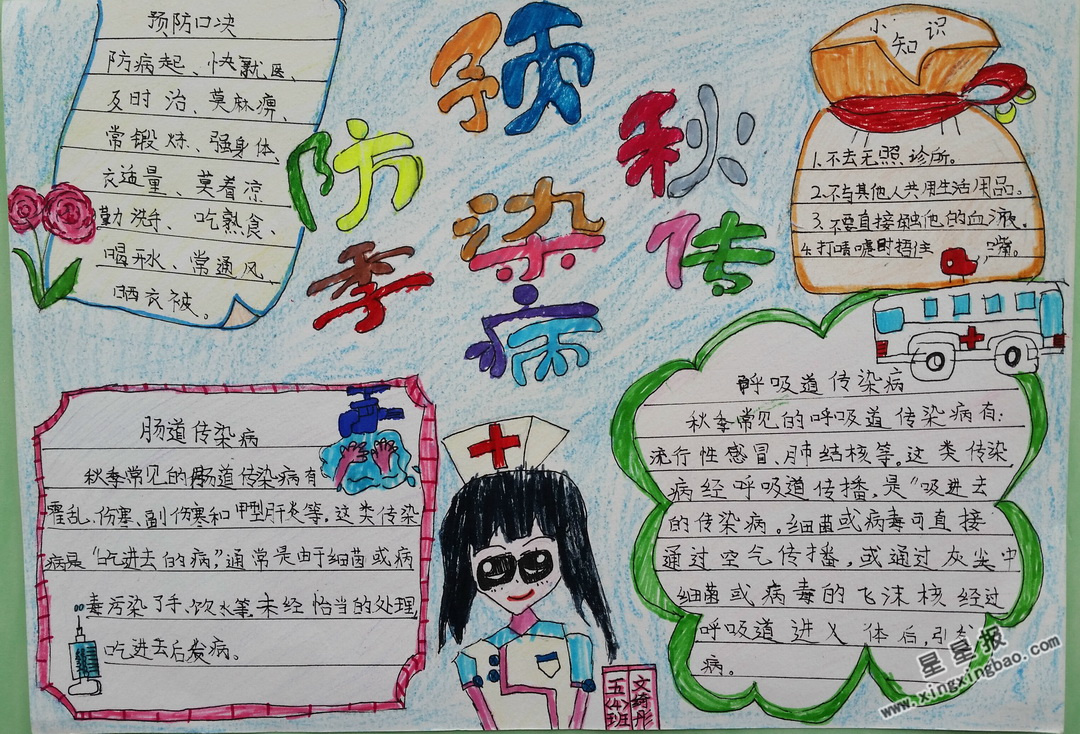 预防口决
防病起、快就医、
及时治、莫麻痹、
常锻炼、强身体、
衣适量、莫着凉
勤洗手、吃熟食、
喝开水、常通风、
晒衣被。
预防秋季传染病
小知识
1.不去无照诊所。
2.不与其他人共用生活用品。
3.不要直接接触他的血液、
4.打喷嚏时捂住 嘴。
肠道传染病
秋季常见的肠道传染病有
霍乱、伤寒、副伤寒和甲型肝炎等。这类传染
病是“吃进去的病”,通常是由于细菌或病
毒污染了手、饮水等,未经恰当的处理,
吃进去后发病。
呼吸道传染病
秋季常见的呼吸道传染病有:
流行性感冒、肺结核等。这类传染
病经呼吸道传播,是“吸进去
的传染病。细菌或病毒可直接
通过空气传播,或通过灰尘中
细菌或病毒的飞沫核经过
呼吸道进入体后,引发
病。
五〈4〉班
文绮彤
星星报
www.xingxingbao.com